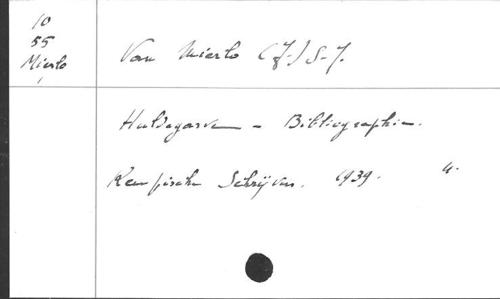 10
55
Mierlo
Van Mierlo (J.) S.J.
Hadewych - Bibliographie.
Kempische Schrijvers. 1939. 4.